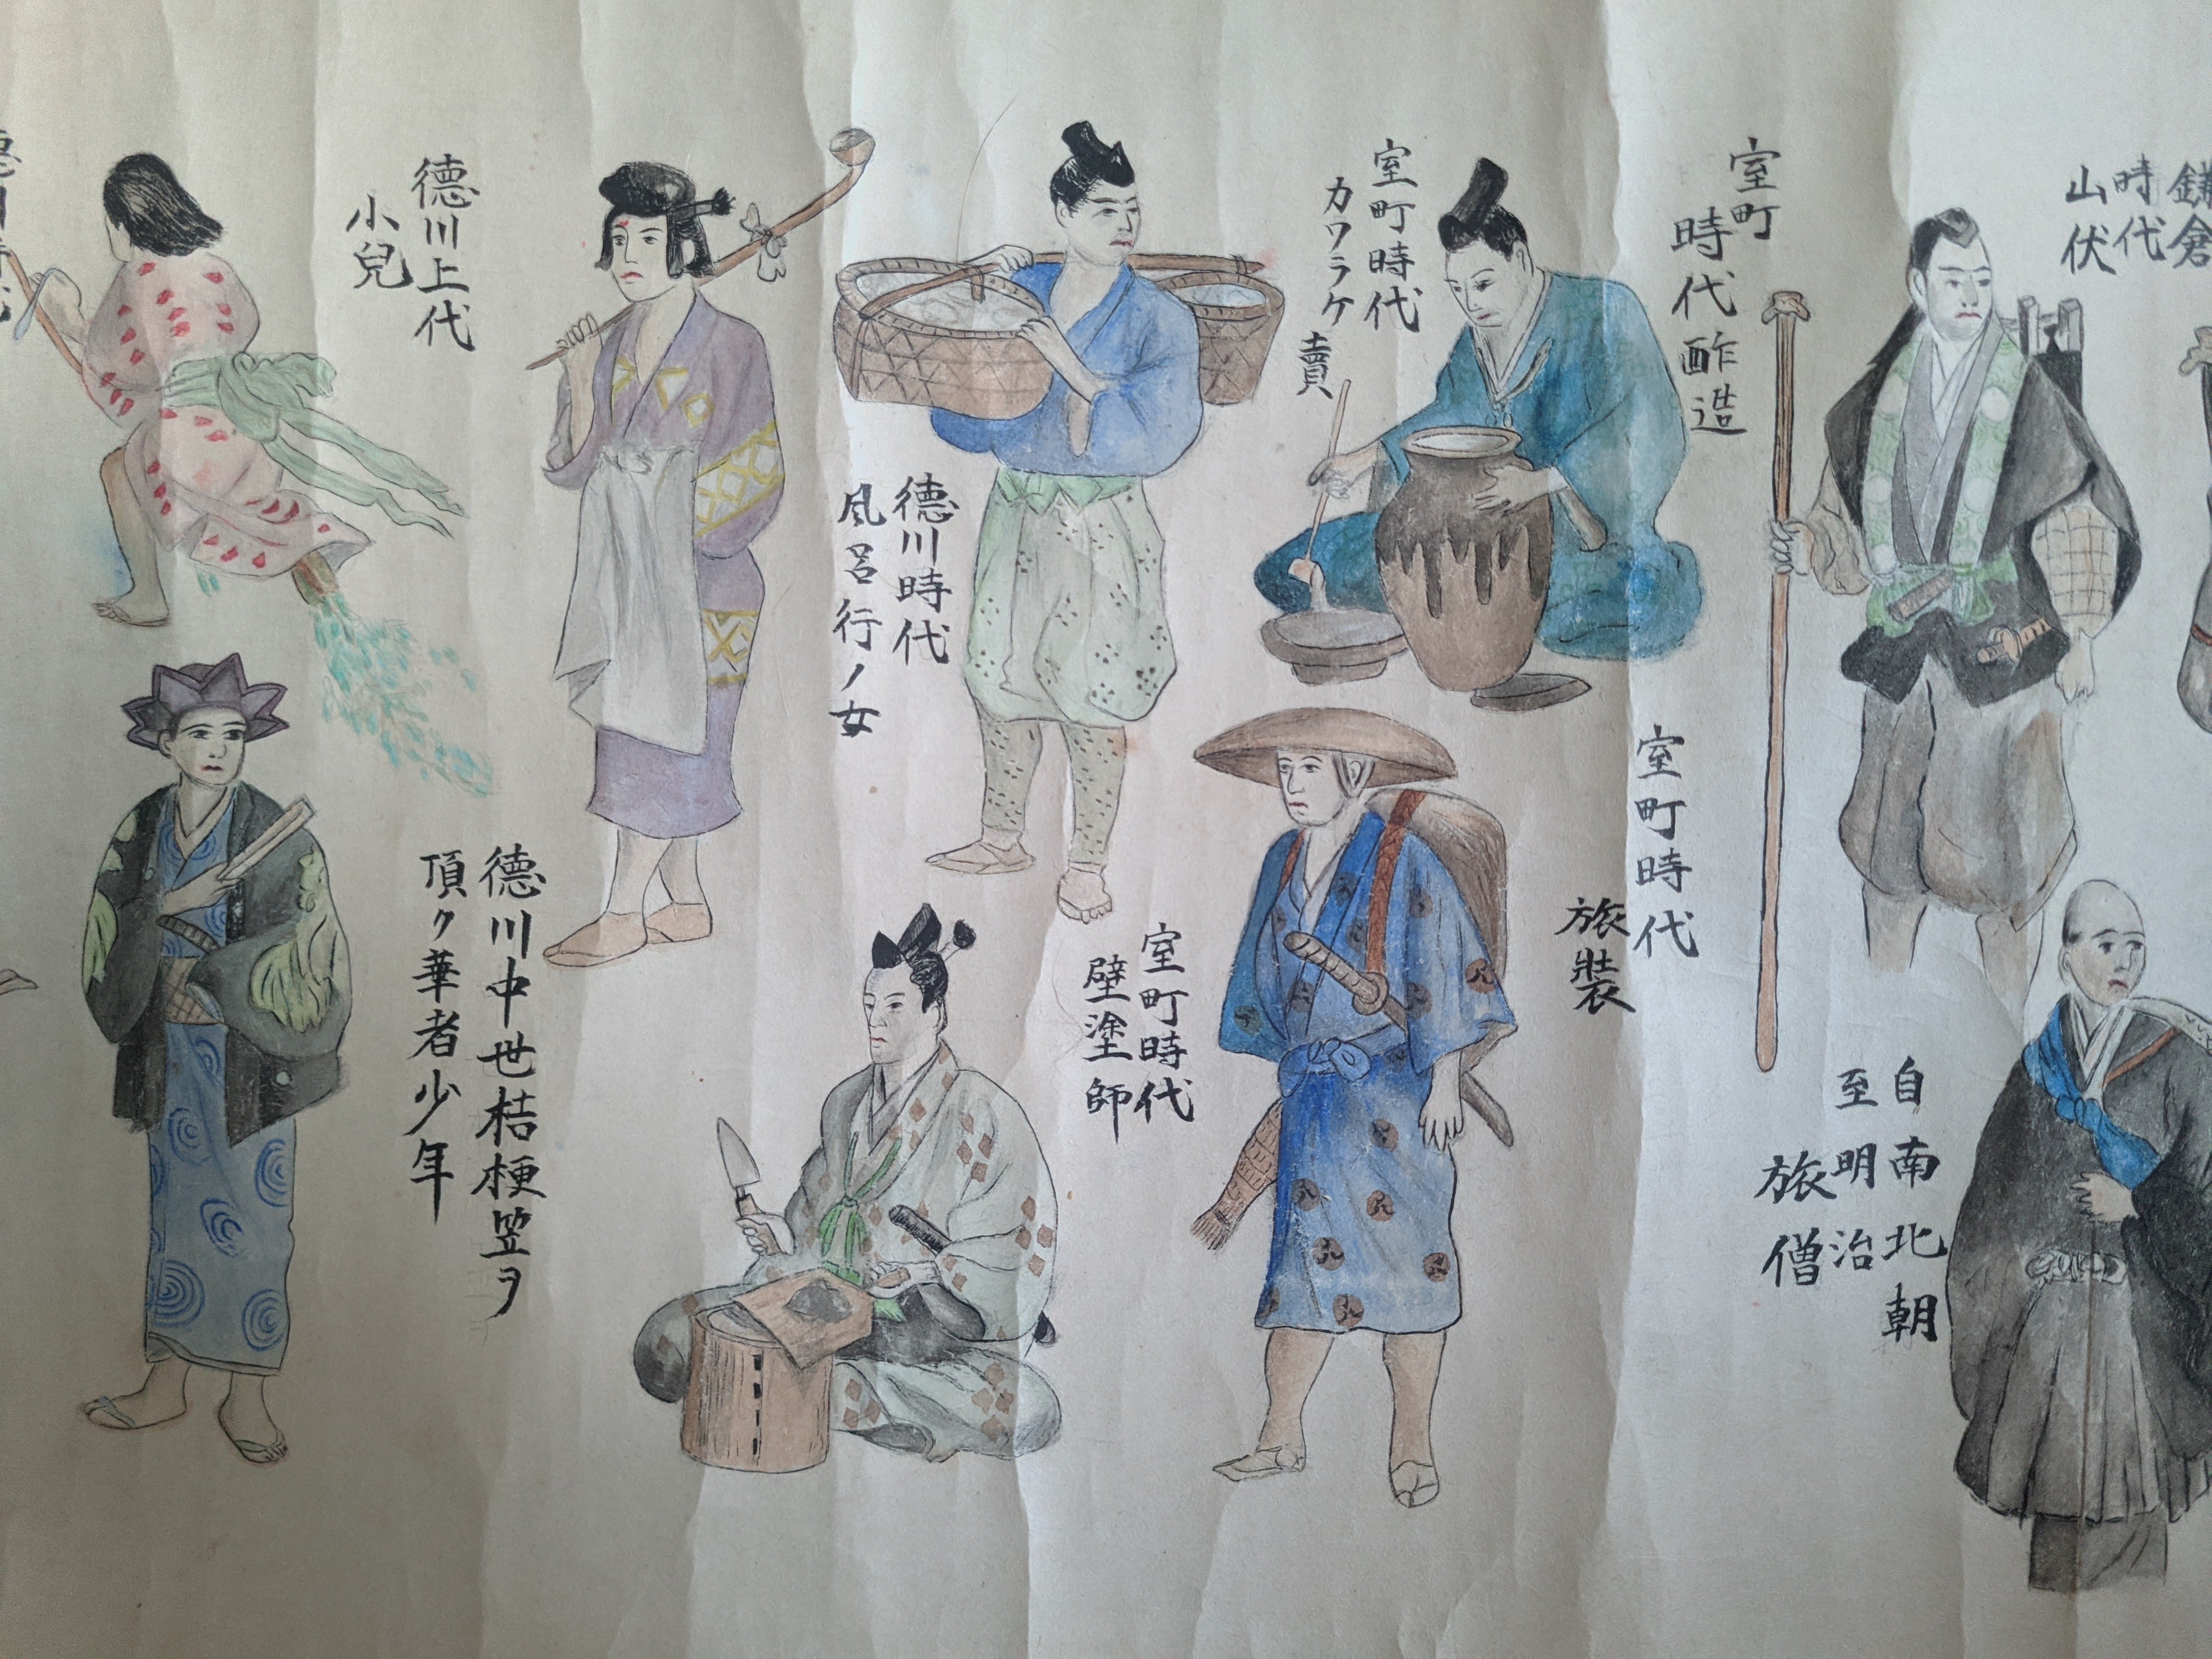 鎌倉
時代
山伏
自南北朝
至明治
旅僧
室町
時代酢造
室町時代
旅裝
室町時代
カワラケ賣
室町時代
壁塗師
德川時代
風呂行ノ女
德川中世桔梗笠ヲ
頂ク華者少年
德川上代
小兒